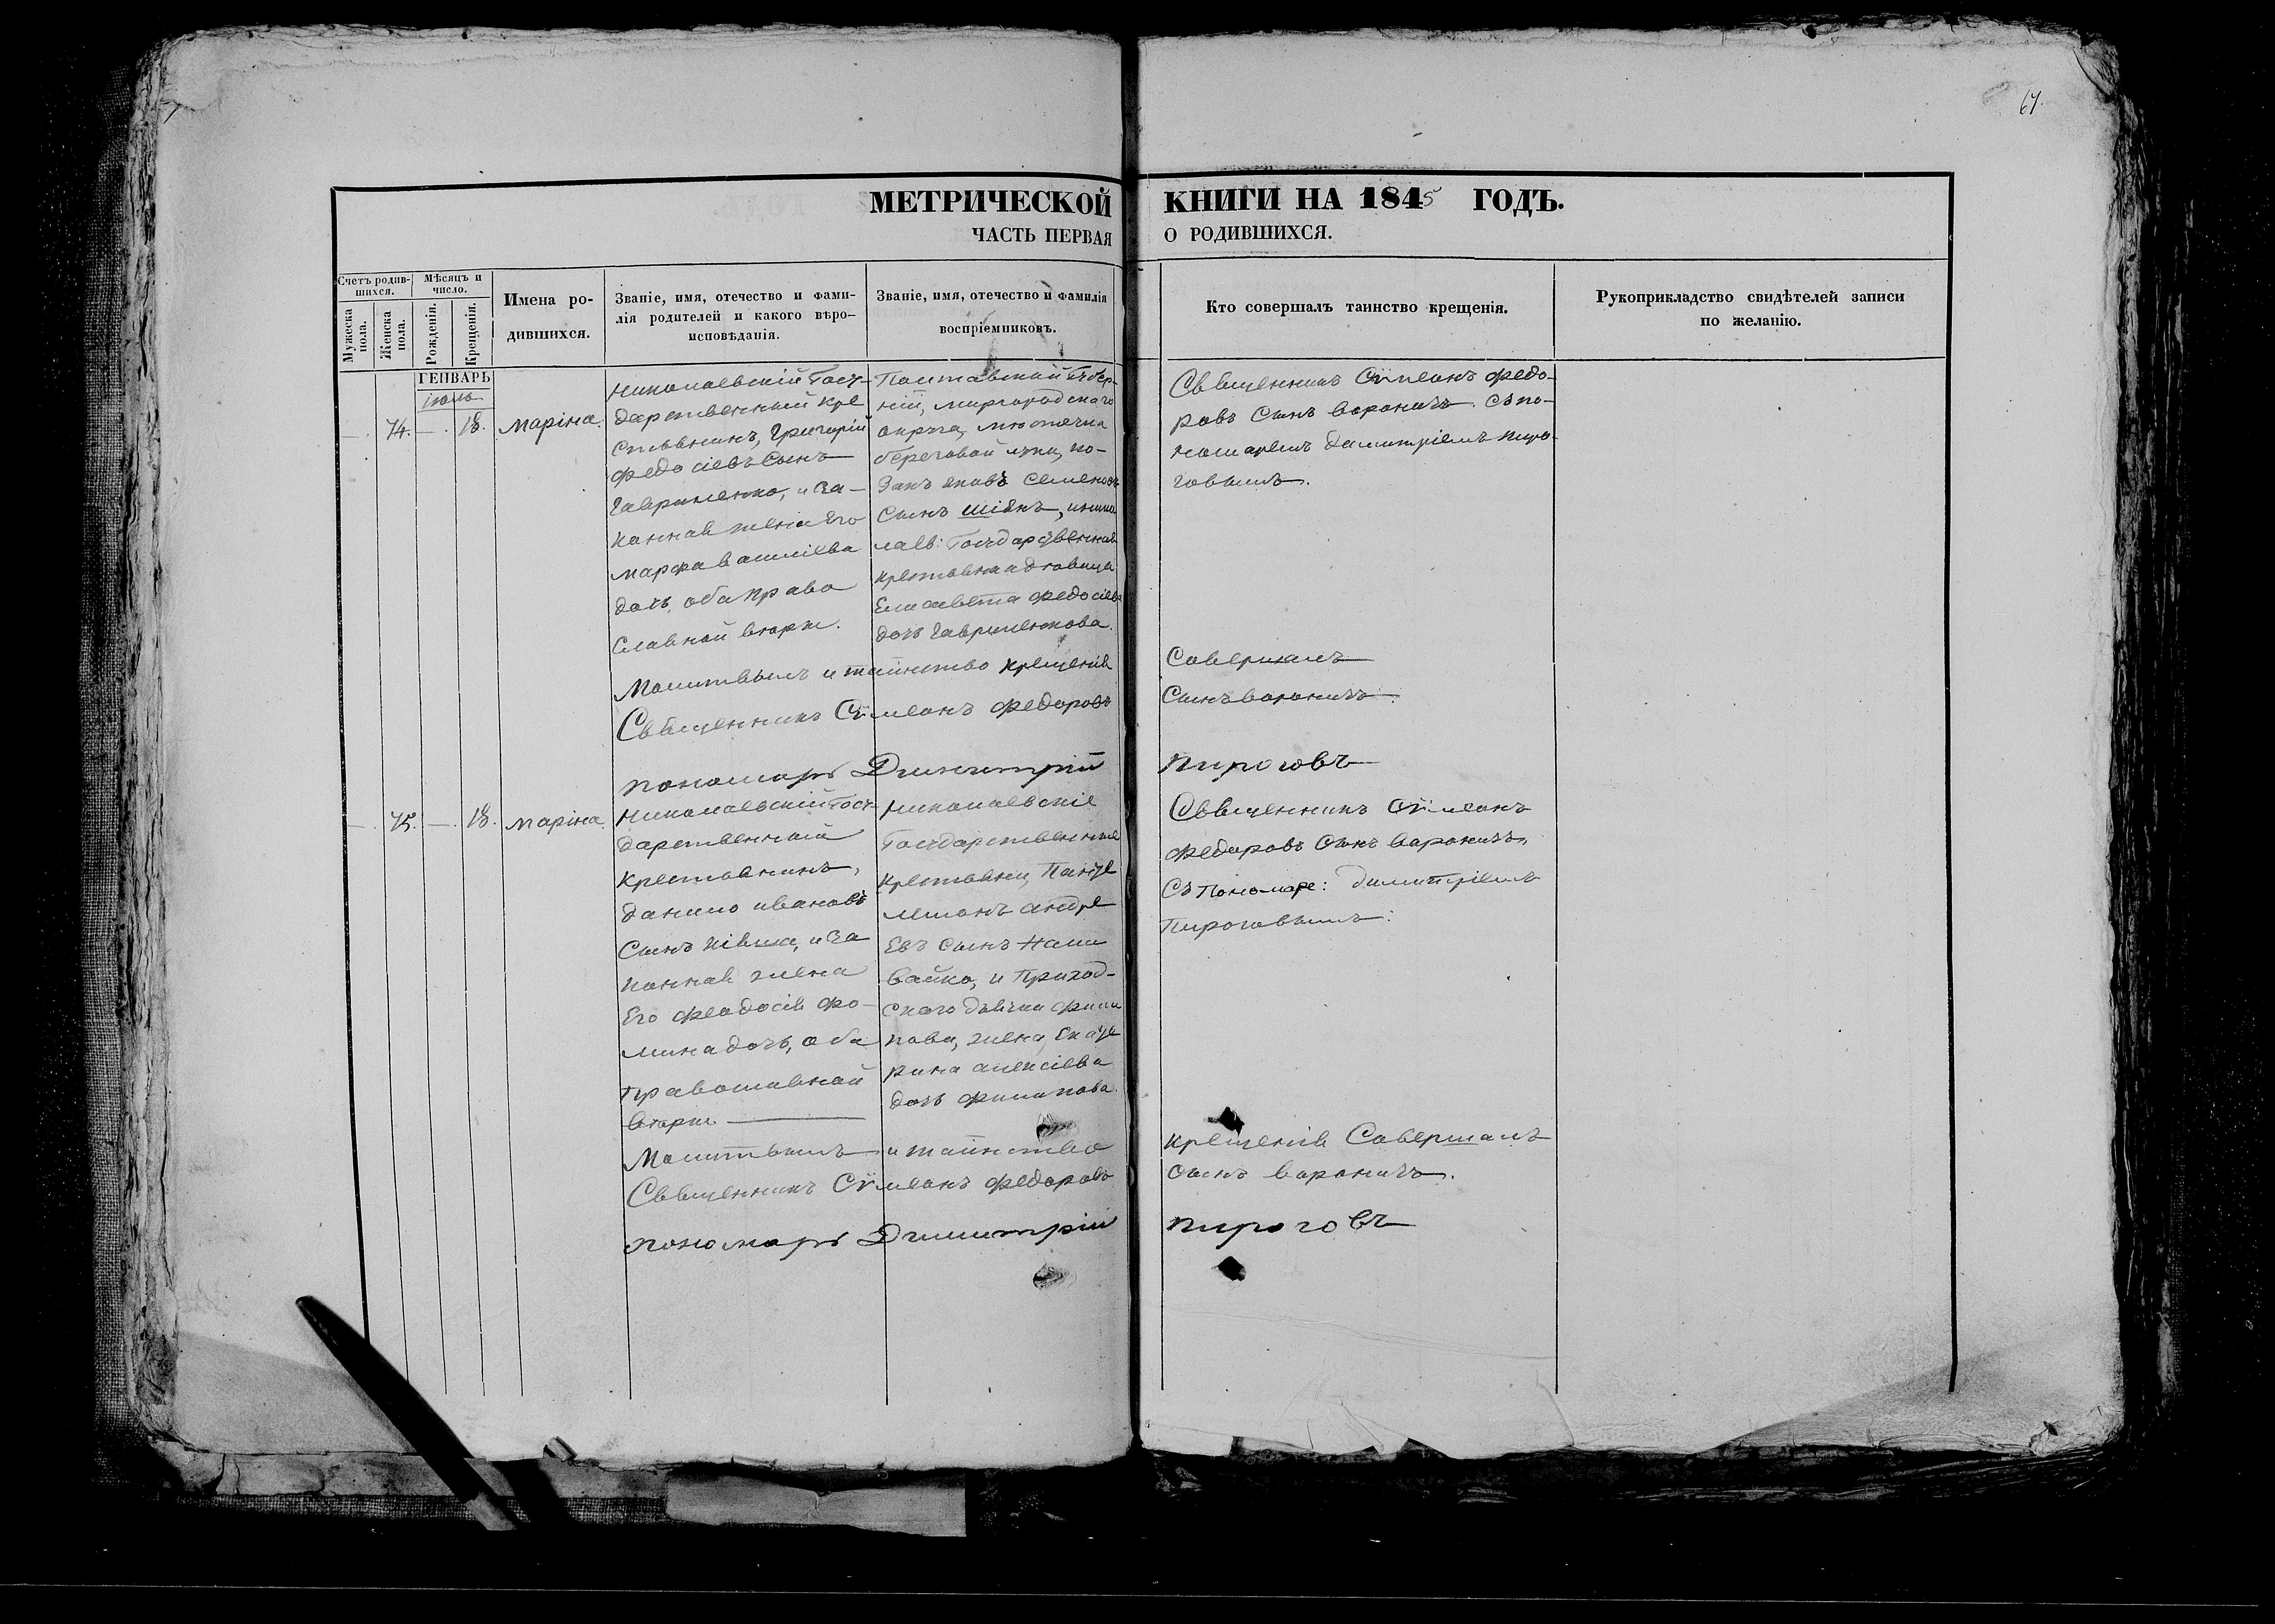 67.
МЕТРИЧЕСКОЙ КНИГИ НА 1845 ГОДЪ.
ЧАСТЬ ПЕРВАЯ О РОДИВШИХСЯ.
Счетъ родив-
шихся.
Мужеска
пола.
Женска
пола.
Мѣсяцъ и
число.
Рожденія.
Крещенія.
Имена ро-
дившихся.
Званіе, имя, отечество и фами-
лія родителей и какого вѣро-
исповѣданія.
Званіе, имя, отечество и фамилія
воспріемниковъ.
Кто совершалъ таинство крещенія.
Рукоприкладство свидѣтелей записи
по желанію.
ГЕНВАРЬ
іюль
74. — 18. маріна.
николаевскій Госу-
дарственный кре
стьянинъ, Григорій
федосіевъ Сынъ
Гавриленко, и За-
конная жена Его
марфа василіева
дочь, оба право
славной вѣры.
Полтавской Губер-
ніи, миргородскаго
округа,
береговой луки, ко-
закъ яковъ Семеновъ
Сынъ шіянъ, и нико
лаев: Государственная
крестьянка дѣвица
Елисавета федосіева
дочь Гавриленкова.
Священникъ Сѵмеонъ федо-
ровъ Сынъ вороничъ. Съ по-
номаремъ димитріемъ пиро-
говымъ.
Молитвилъ и таинство крещенія Совершилъ
Священникъ Сѵмеонъ федоровъ Сынъ вороничъ.
пономарь Димитрій пироговъ
75. — 18. маріна
Николаевскій Госу-
дарственный
крестьянинъ,
данило ивановъ
Сынъ ківша, и За
конная жена
Его феодосія фо-
мина дочь, оба
православной
вѣры
николаевскіе
Государственные
крестьяне, Панте
леимонъ андре
Евъ сынъ Нали
вайко, и Приход-
скаго дьячка фили
пова, жена, Екате
рина алексіева
дочь филипова.
Священникъ Сѵмеонъ
федоровъ Сынъ вороничъ,
Съ пономаре: димитріемъ
Пироговымъ:
Молитвилъ и таинство крещенія Совершалъ
Священникъ Сѵмеонъ федоровъ Сынъ вороничъ.
пономарь Димитрій пироговъ